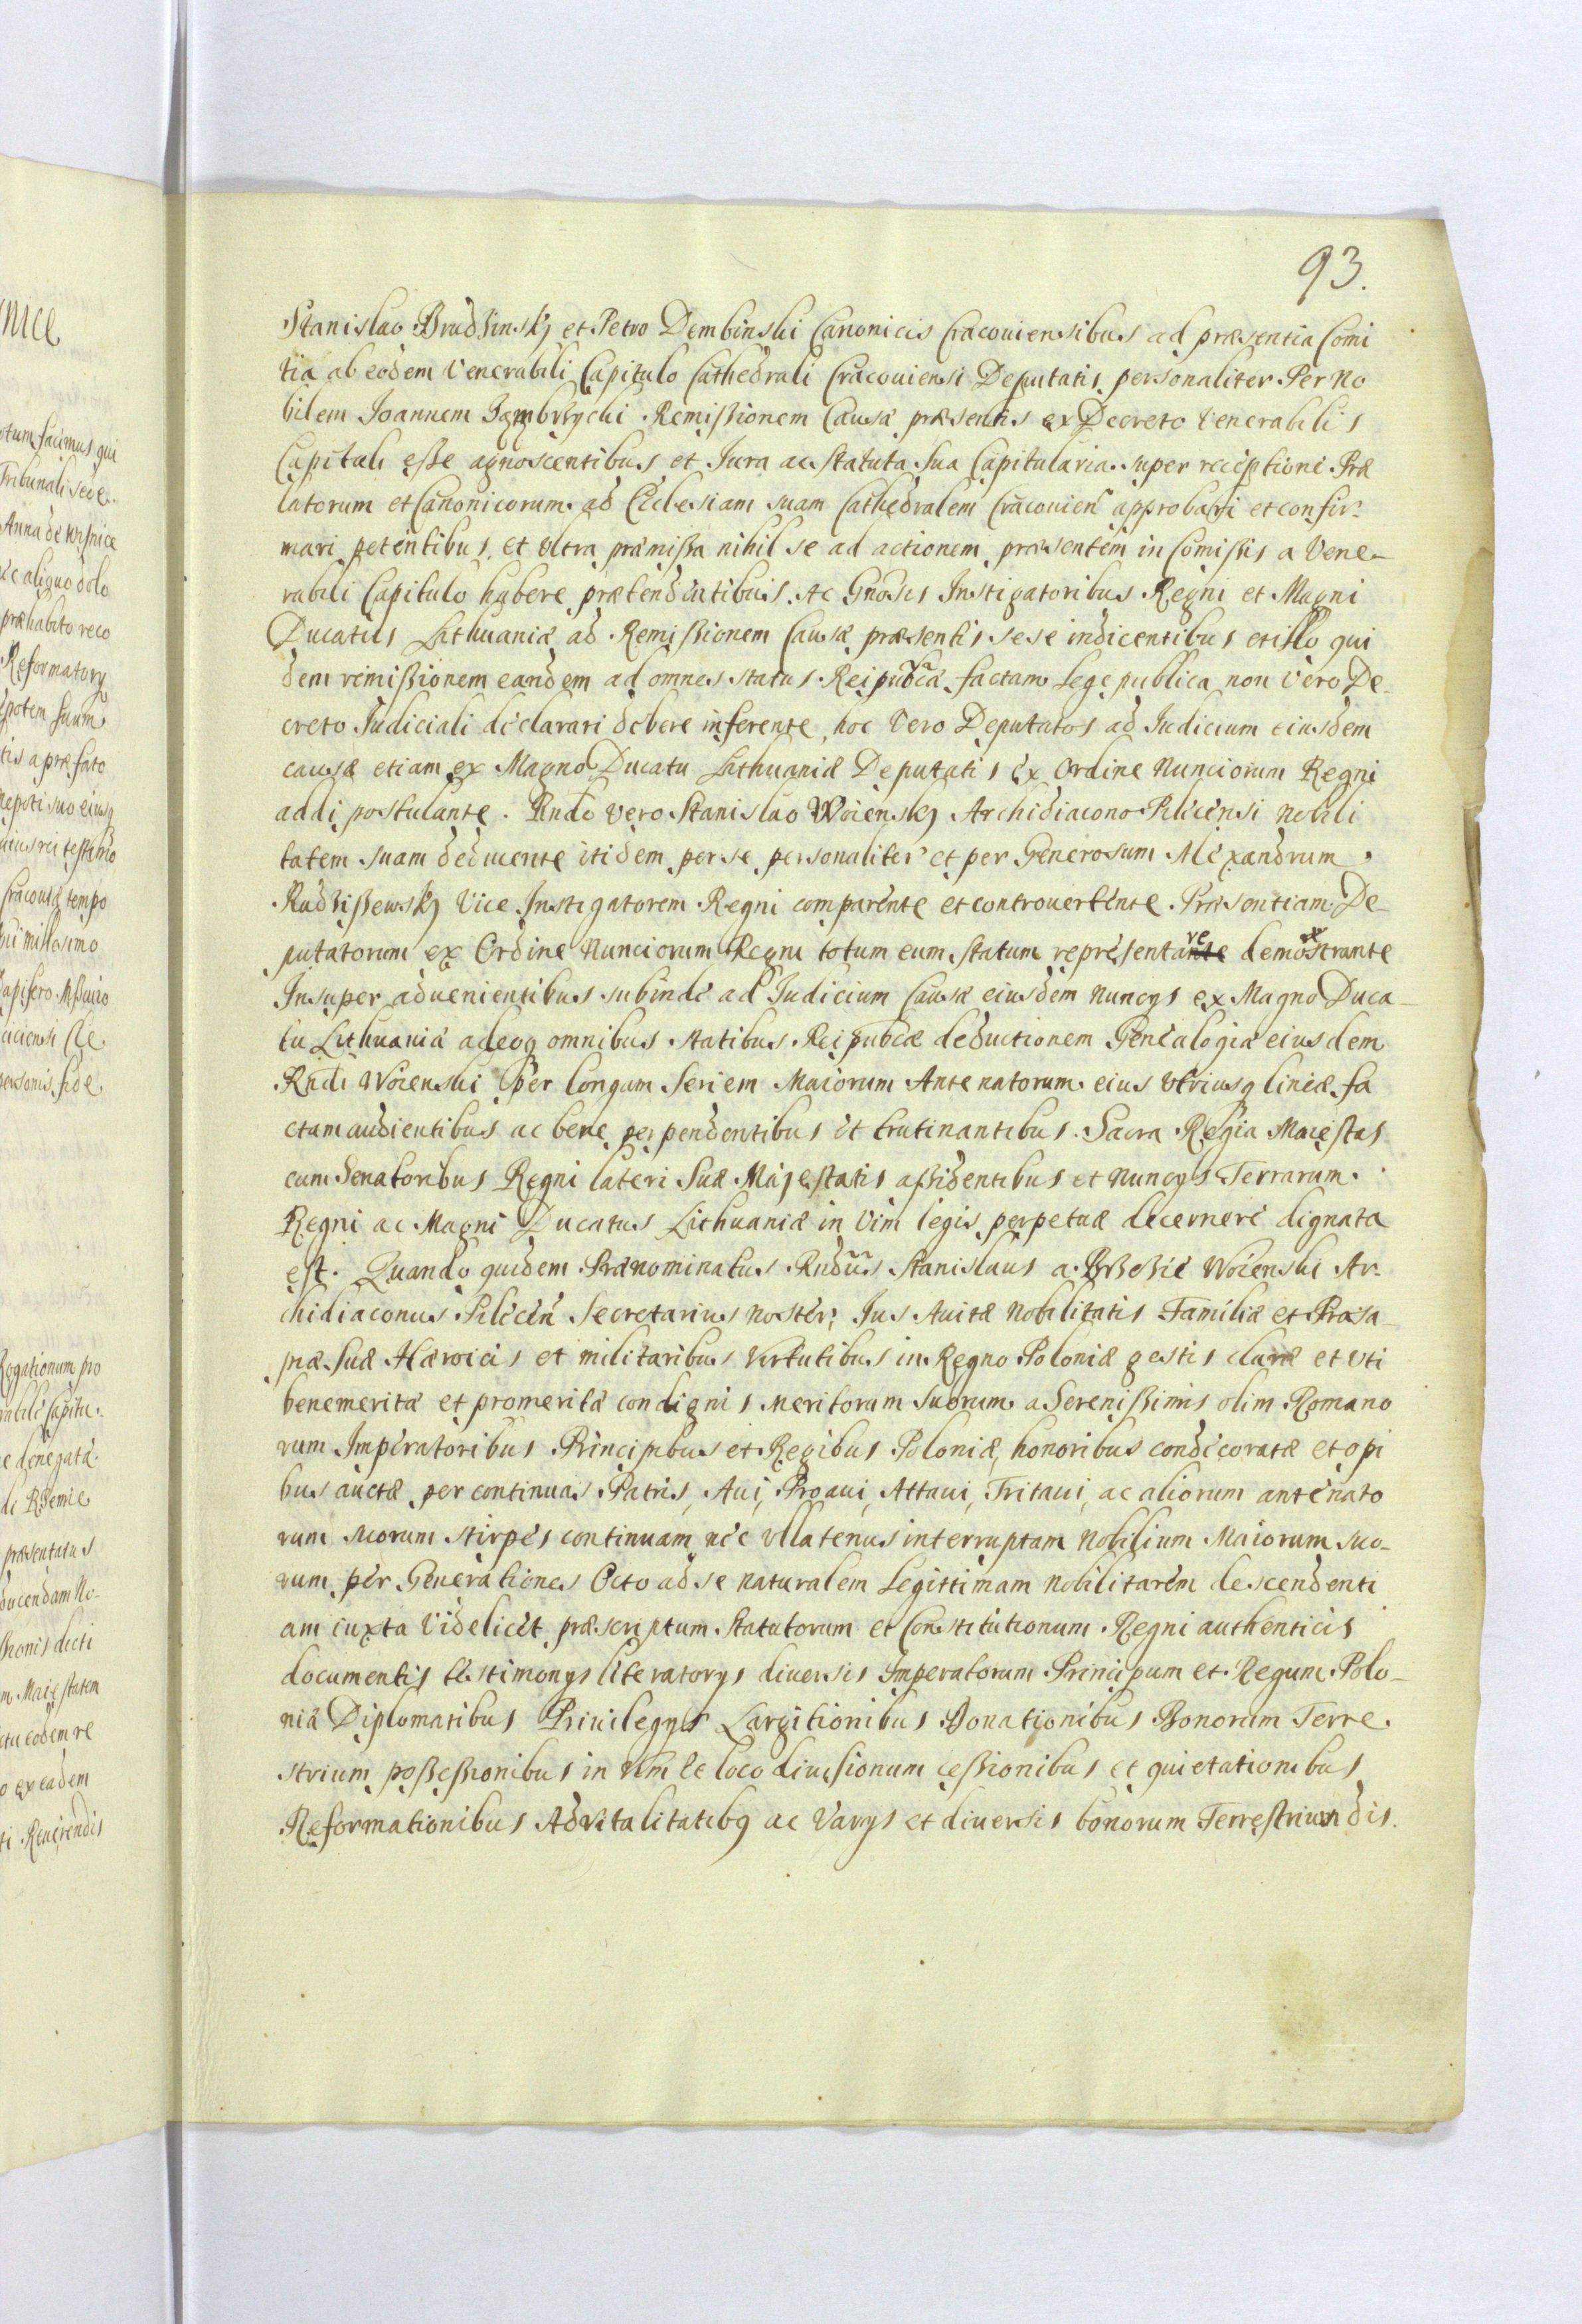 93.
Stanislao Brudzinskÿ et Petro Dembinski Canonicis Cracouiensibus ad præsentia Comi
tia ab eodem Venerabili Capitulo Cathedrali Cracouiensi Deputatis personaliter Per No
bilem Joannem Zembrzychi Remißionem Causæ præsentis ex Decreto Venerabilis
Capituli eße agnoscentibus et Jura ac statuta sua Capitularia super receptione Præ
latorum et Canonicorum ad Ecclesiam suam Cathedralem Cracouien approbari et confir-
mari petentibus, et Vltra præmißa nihil se ad actionem præsentem in Comißis a Vene-
rabili Capitulo habere prætendentibus. Ac Gnosis Instigatoribus Regni et Magni
Ducatus Lithuaniæ ad Remißionem Causæ præsentis sese indicentibus et illo qui
dem remißionem eandem ad omnes status Reipubcæ factam Lege publica non Vero De-
creto Judiciali declarari debere inferente, hoc Vero Deputatos ad Iudicium eiusdem
causæ etiam ex Magno Ducatu Lithuaniæ Deputatis ex Ordine Nunciorum Regni
addi postulante. Rndo vero Stanislao Woienskÿ Archidiacono Pilicensi Nobili
tatem suam deducente itidem per se personaliter et per Generosum Alexandrum
Rudzißewskÿ Vice Instigatorem Regni comparente et controuertente. Præsentiam De-
putatorum ex Ordine Nunciorum Regni totum eum statum representare demostrante
Insuper aduenientibus subinde ad Iudicium Causæ eiusdem Nuncÿs ex Magno Duca-
tu Lithuaniæ adeoq omnibus statibus Reipubcæ deductionem Genealogiæ eiusdem
Rndi Woienski per longam Seriem Maiorum Antenatorum eius Vtriusq liniæ fa
ctam audientibus ac bene perpendentibus et trutinantibus. Sacra Regia Maiestas
cum Senatoribus Regni lateri Suæ Majestatis aßidentibus et Nuncÿs Terrarum
Regni ac Magni Ducatus Lithuaniæ in Vim legis perpetuæ decernere dignata
est. Quando quidem Prænominatus Rndus Stanislaus a Brzezie Woienski Ar-
chidiaconus Pilecen Secretarius Noster, Jus Auitæ Nobilitatis Familiæ et Prosa-
piæ Suæ Hæroicis et militaribus Virtutibus in Regno Poloniæ gestis claræ et Vti
benemeritæ et promeritæ condignis Meritorum Suorum a Serenißimis olim Romano
rum Imperatoribus Principibus et Regibus Poloniæ, honoribus condecoratæ et opi
bus auctæ per continuas Patris, Aui, Proaui, Attaui, Tritaui, ac aliorum antenato
rum suorum stirpes continuam nec Vllatenus interruptam Nobilium Maiorum suo-
rum per Generationes Octo ad se naturalem Legittimam Nobilitarem descendenti
am iuxta Videlicet præscriptum Statutorum et Constitutionum Regni authenticis
documentis testimonÿs literatorÿs diuersis Imperatorum Principum et Regum Polo-
niæ Diplomatibus Priuilegÿs Largitionibus Donationibus Bonorum Terre
strium poßeßionibus in Vim et loco diuisionum ceßionibus et quietationibus
Reformationibus Aduitalitatibq ac Varÿs et diuersis bonorum Terrestrium dis.